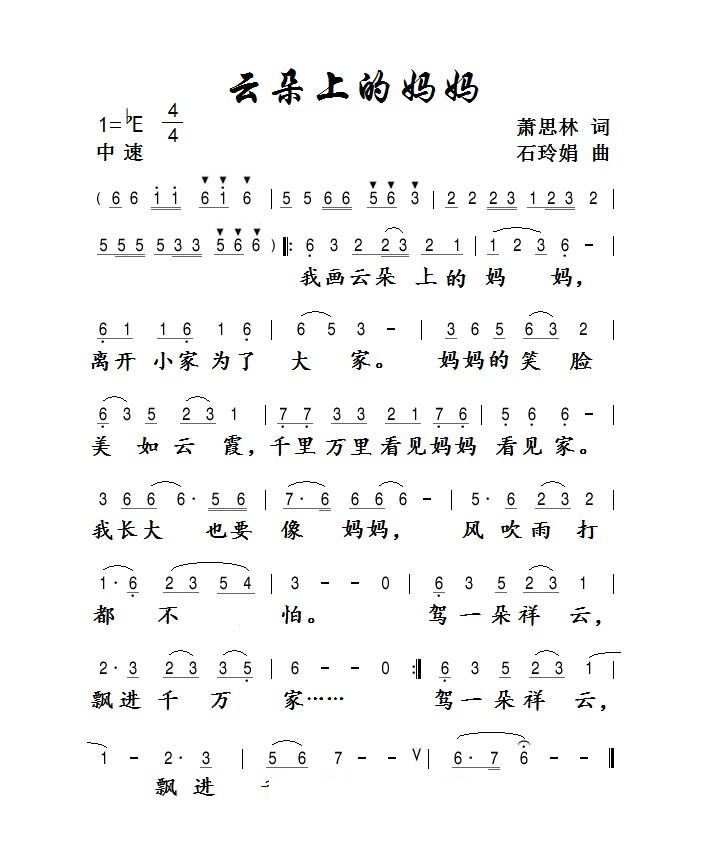 云朵上的妈妈
1=♭E 4/4 萧思林 词
中速 石玲娟 曲
( 6 6 1 1 6 1 6 | 5 5 6 6 5 6 3 | 2 2 2 3 1 2 3 2 |
5 5 5 5 3 3 5 6 6 ) ‖: 6 3 2 2 3 2 1 | 1 2 3 6 - |
我画云朵 上的 妈 妈，
6 1 1 6 1 6 | 6 5 3 - | 3 6 5 6 3 2 |
离开 小家 为了 大 家。 妈妈的 笑 脸
6 3 5 2 3 1 | 7 7 3 3 2 1 7 6 | 5 6 6 - |
美 如云 霞，千里 万里 看见妈妈 看见 家。
3 6 6 6· 5 6 | 7· 6 6 6 6 - | 5· 6 2 3 2 |
我长大 也要 像 妈妈， 风 吹雨 打
1· 6 2 3 5 4 | 3 - - 0 | 6 3 5 2 3 1 |
都 不 怕。 驾 一 朵祥 云，
2· 3 2 3 3 5 | 6 - - 0 :‖ 6 3 5 2 3 1 |
飘进 千 万 家…… 驾 一朵祥 云，
1 - 2· 3 | 5 6 7 - - V | 6· 7 6 - - ‖
飘 进